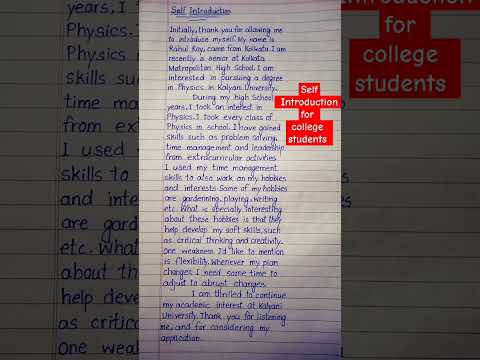 Self Introduction
Initially, thank you for allowing me
to introduce myself. My name is
Rahul Roy, came from Kolkata. I am
recently a senior at Kolkata
Metropolitan High School. I am
interested in pursuing a degree
in Physics in Kalyani University.
During my high School
years, I took an interest in
Physics. I took every class of
Physics in school. I have gained
skills such as problem solving,
time management and leadership
from extracurricular activities.
I used my time management
skills to also work on my hobbies
and interests. Some of my hobbies
are gardenning, playing, writing
etc. What is specially interesting
about these hobbies is that they
help develop my soft skills, such
as critical thinking and creativity.
One weakness I'd like to mention
is flexibility. Whenever my plan
changes I need some time to
adjust to abrupt changes.
I am thrilled to continue
my academic interest at Kalyani
University. Thank you for listening
me, and for considering my
application.
Self
Introduction
for
college
students
for
college
students
years, I
Physics. I
Physics
skills
time
from
I used
skills to
and
are
etc. What
about the
help
as
One